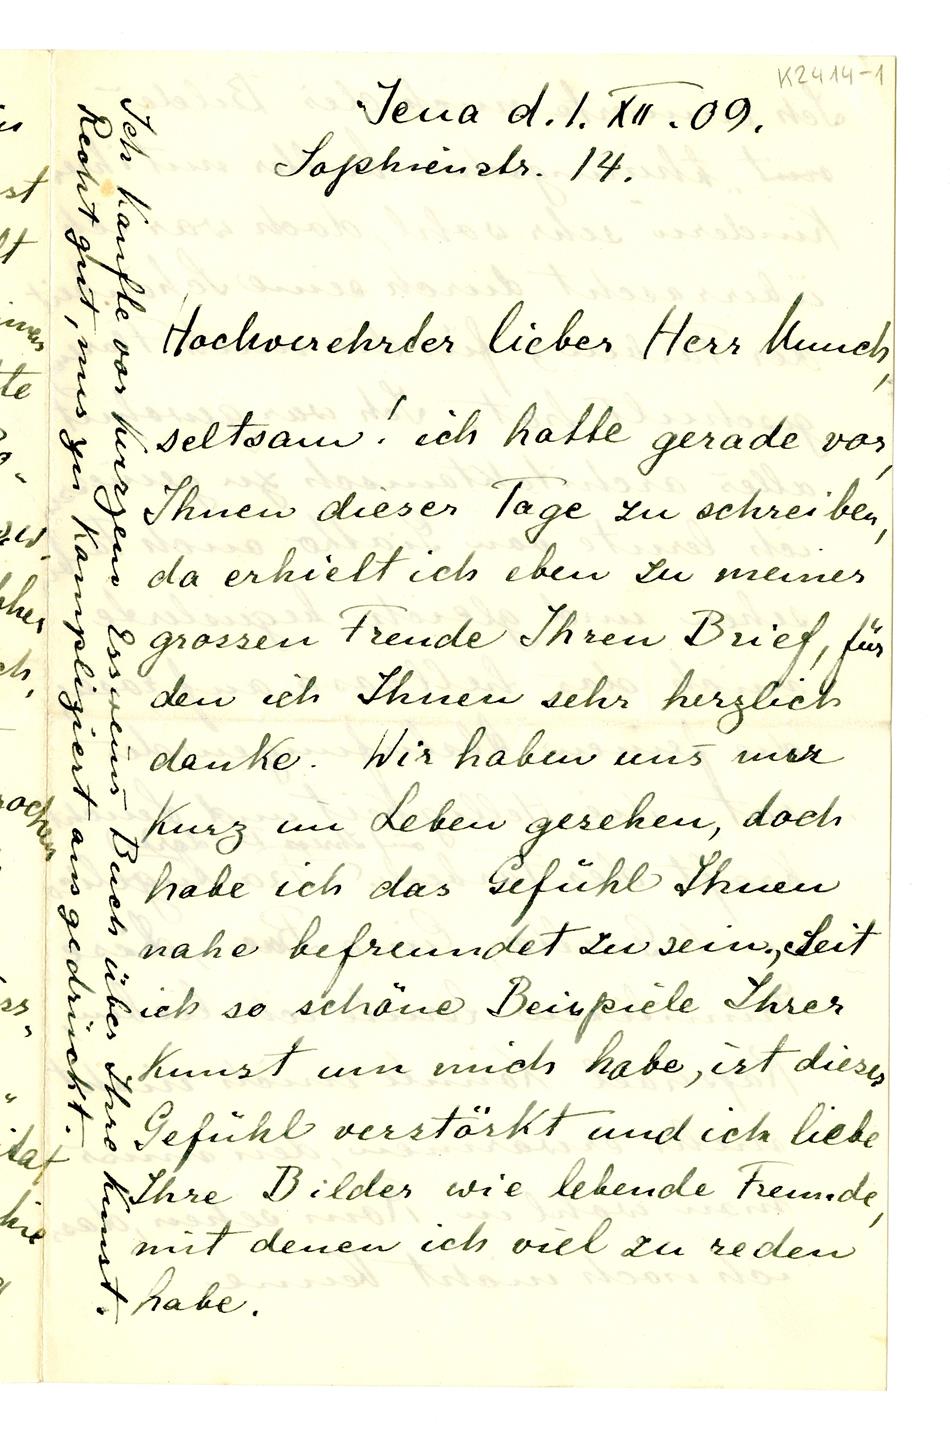 K2414-1
Jena d. 1. XII. 09.
Sophienstr. 14.
Hochverehrter lieber Herr Munch,
seltsam! ich hatte gerade vor,
Ihnen dieser Tage zu schreiben,
da erhielt ich eben zu meiner
grossen Freude Ihren Brief, für
den ich Ihnen sehr herzlich
danke. Wir haben uns nur
kurz im Leben gesehen, doch
habe ich das Gefühl Ihnen
nahe befreundet zu sein, Seit
ich so schöne Beispiele Ihrer
Kunst um mich habe, ist dieses
Gefühl verstärkt und ich liebe
Ihre Bilder wie lebende Freunde,
mit denen ich viel zu reden
habe.
Ich kaufte vor kurzem Essweins Buch über Ihre Kunst.
Recht gut, nur zu kompliziert ausgedrückt.